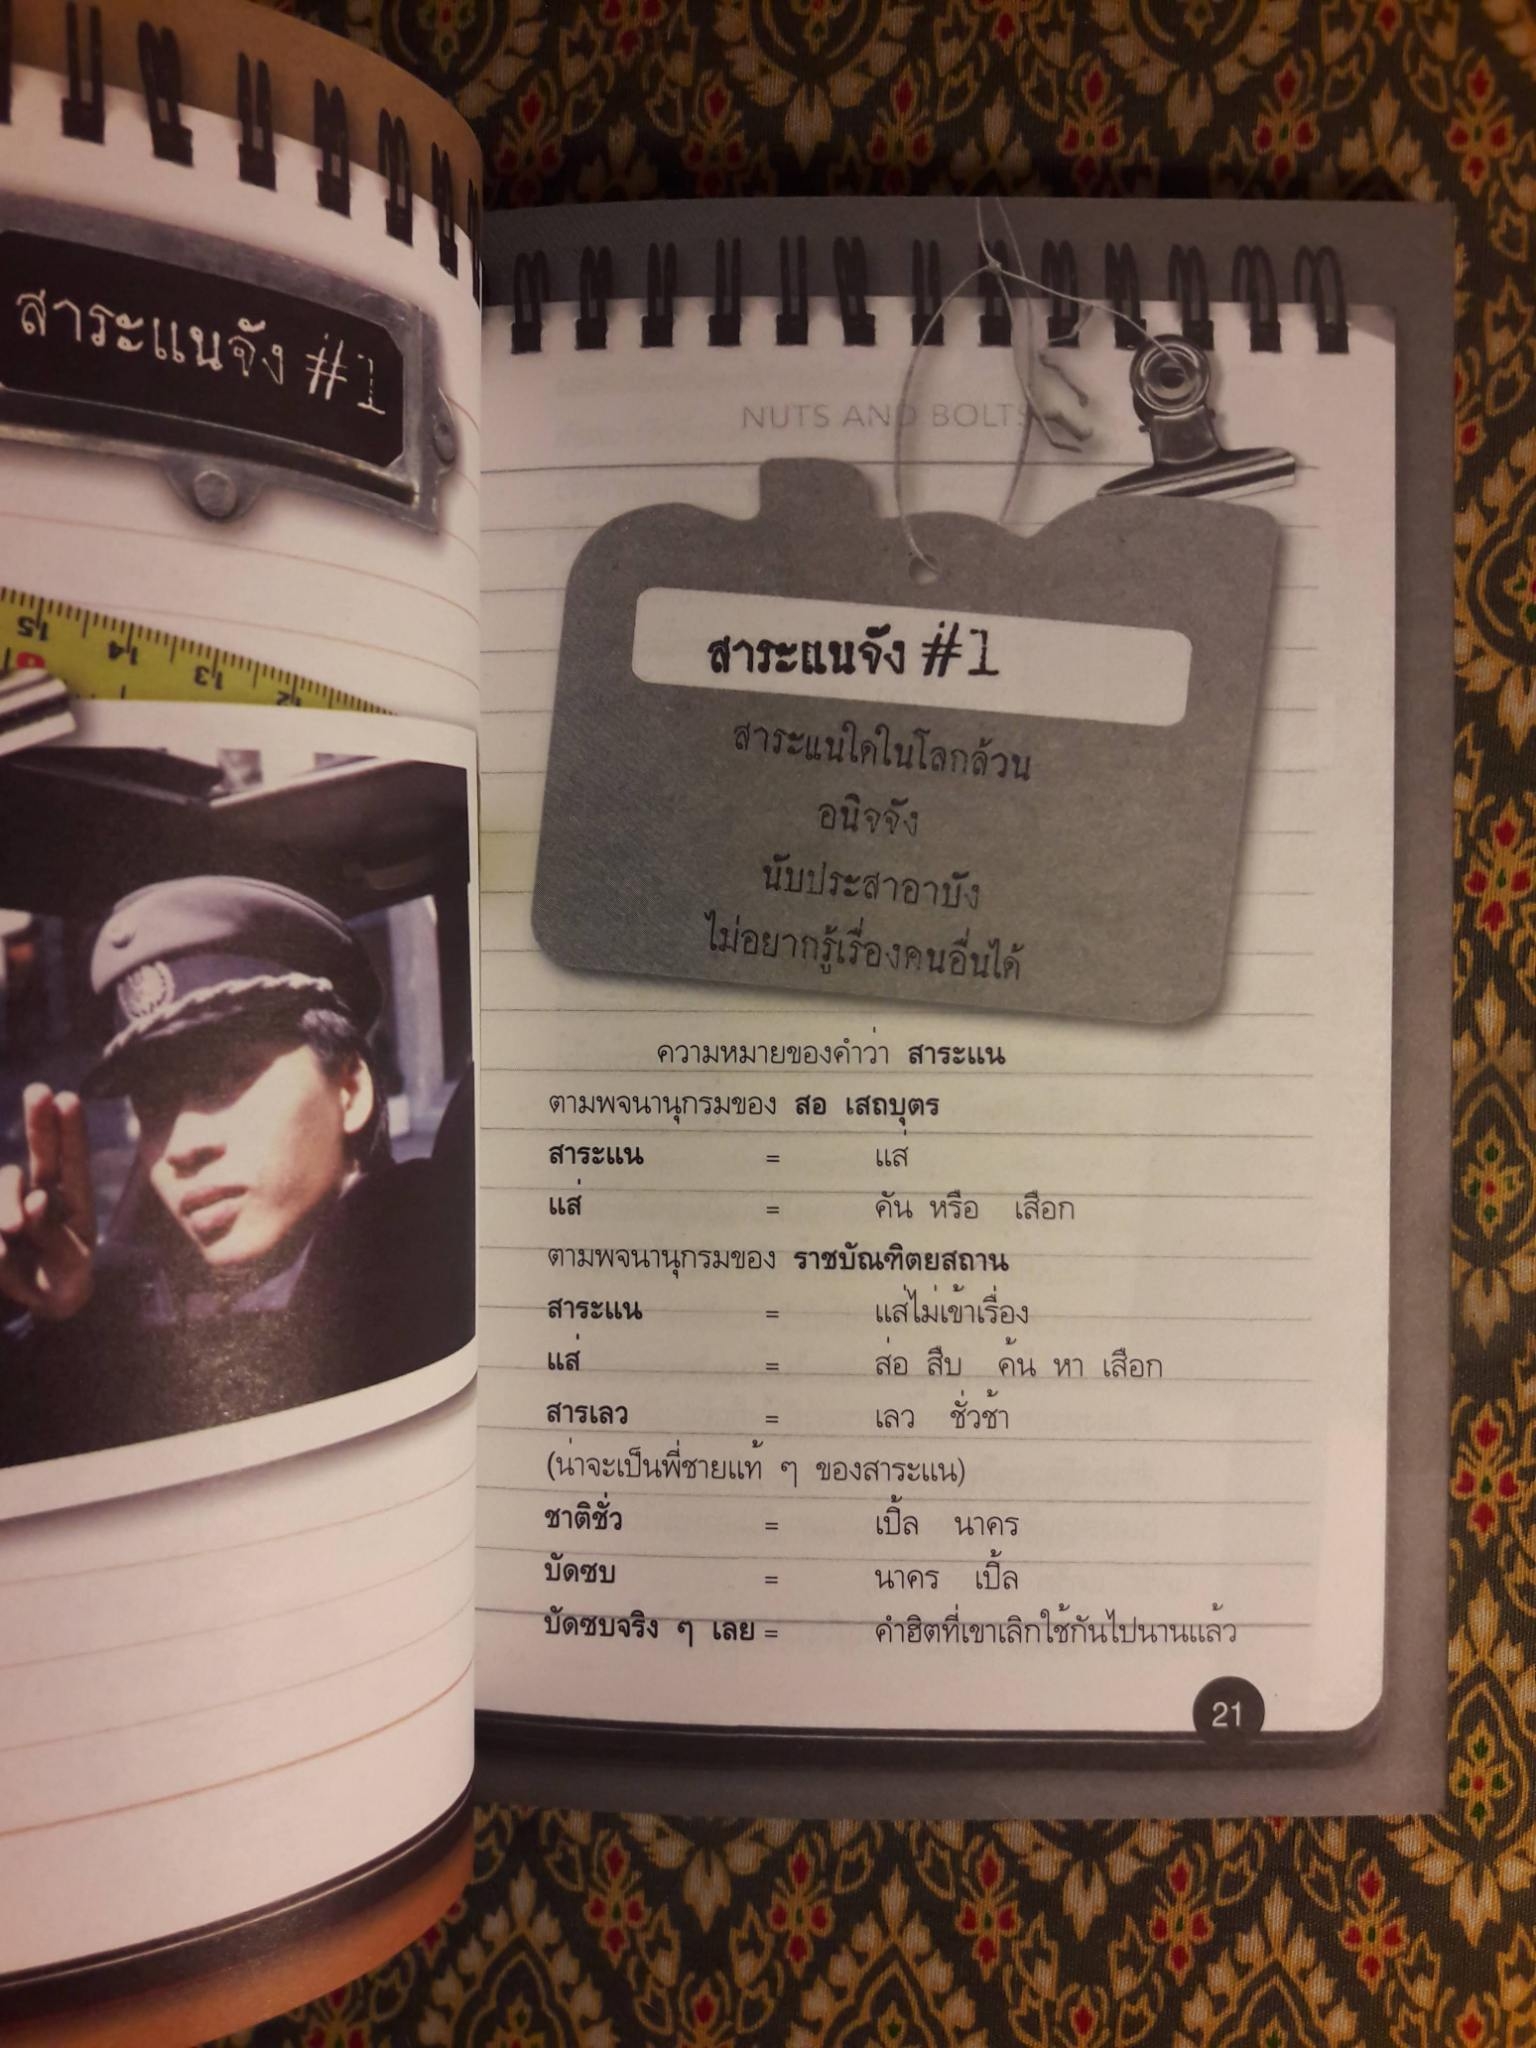 สาระแนจัง #1
15
14
13
12
NUTS AND BOLTS
สาระแนจัง #1
สาระแนใดในโลกล้วน
อนิจจัง
นับประสาอาบัง
ไม่อยากรู้เรื่องคนอื่นได้
ความหมายของคำว่า สาระแน
ตามพจนานุกรมของ สอ เสถบุตร
สาระแน = แส่
แส่ = คัน หรือ เสือก
ตามพจนานุกรมของ ราชบัณฑิตยสถาน
สาระแน = แส่ไม่เข้าเรื่อง
แส่ = ส่อ สืบ ค้น หา เสือก
สารเลว = เลว ชั่วช้า
(น่าจะเป็นพี่ชายแท้ ๆ ของสาระแน)
ชาติชั่ว = เปิ้ล นาคร
บัดซบ = นาคร เปิ้ล
บัดซบจริง ๆ เลย = คำฮิตที่เขาเลิกใช้กันไปนานแล้ว
21